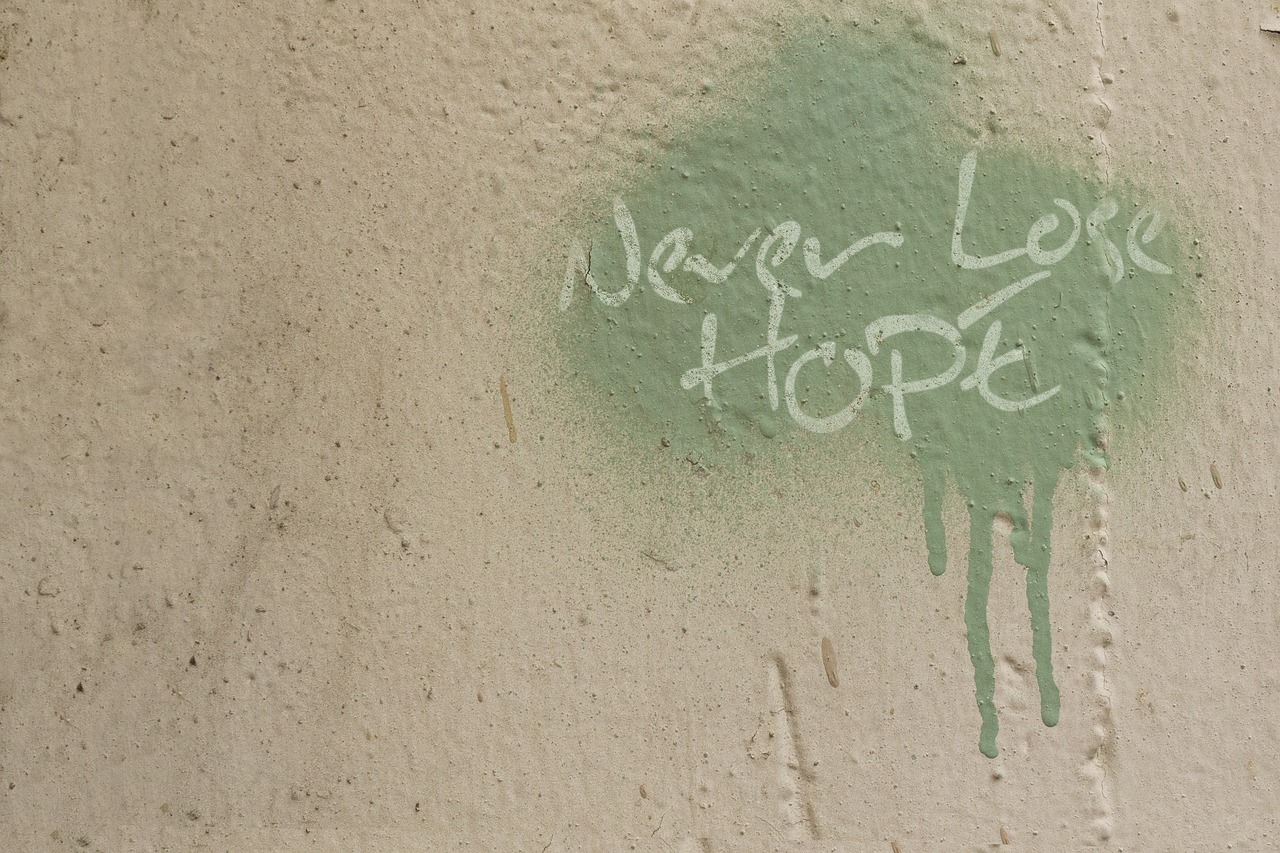 Never Lose
HOPE